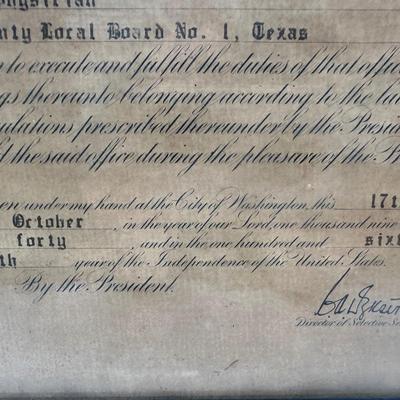 Physician
nty Local Board No. 1, Texas
n to execute and fulfill the duties of that offic
gs thereunto belonging according to the la
ulations prescribed thereunder by the Presid
d the said office during the pleasure of the Pr
en under my hand at the City of Washington, this 17t
October , in the year of our Lord, one thousand nine
forty , and in the one hundred and sixt
th year of the Independence of the United States.
By the President.
Director of Selective Se